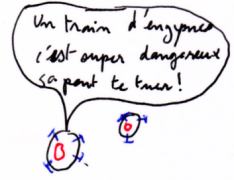 Un train d'engynes
c'est super dangereux
ça peut te tuer!
B
o